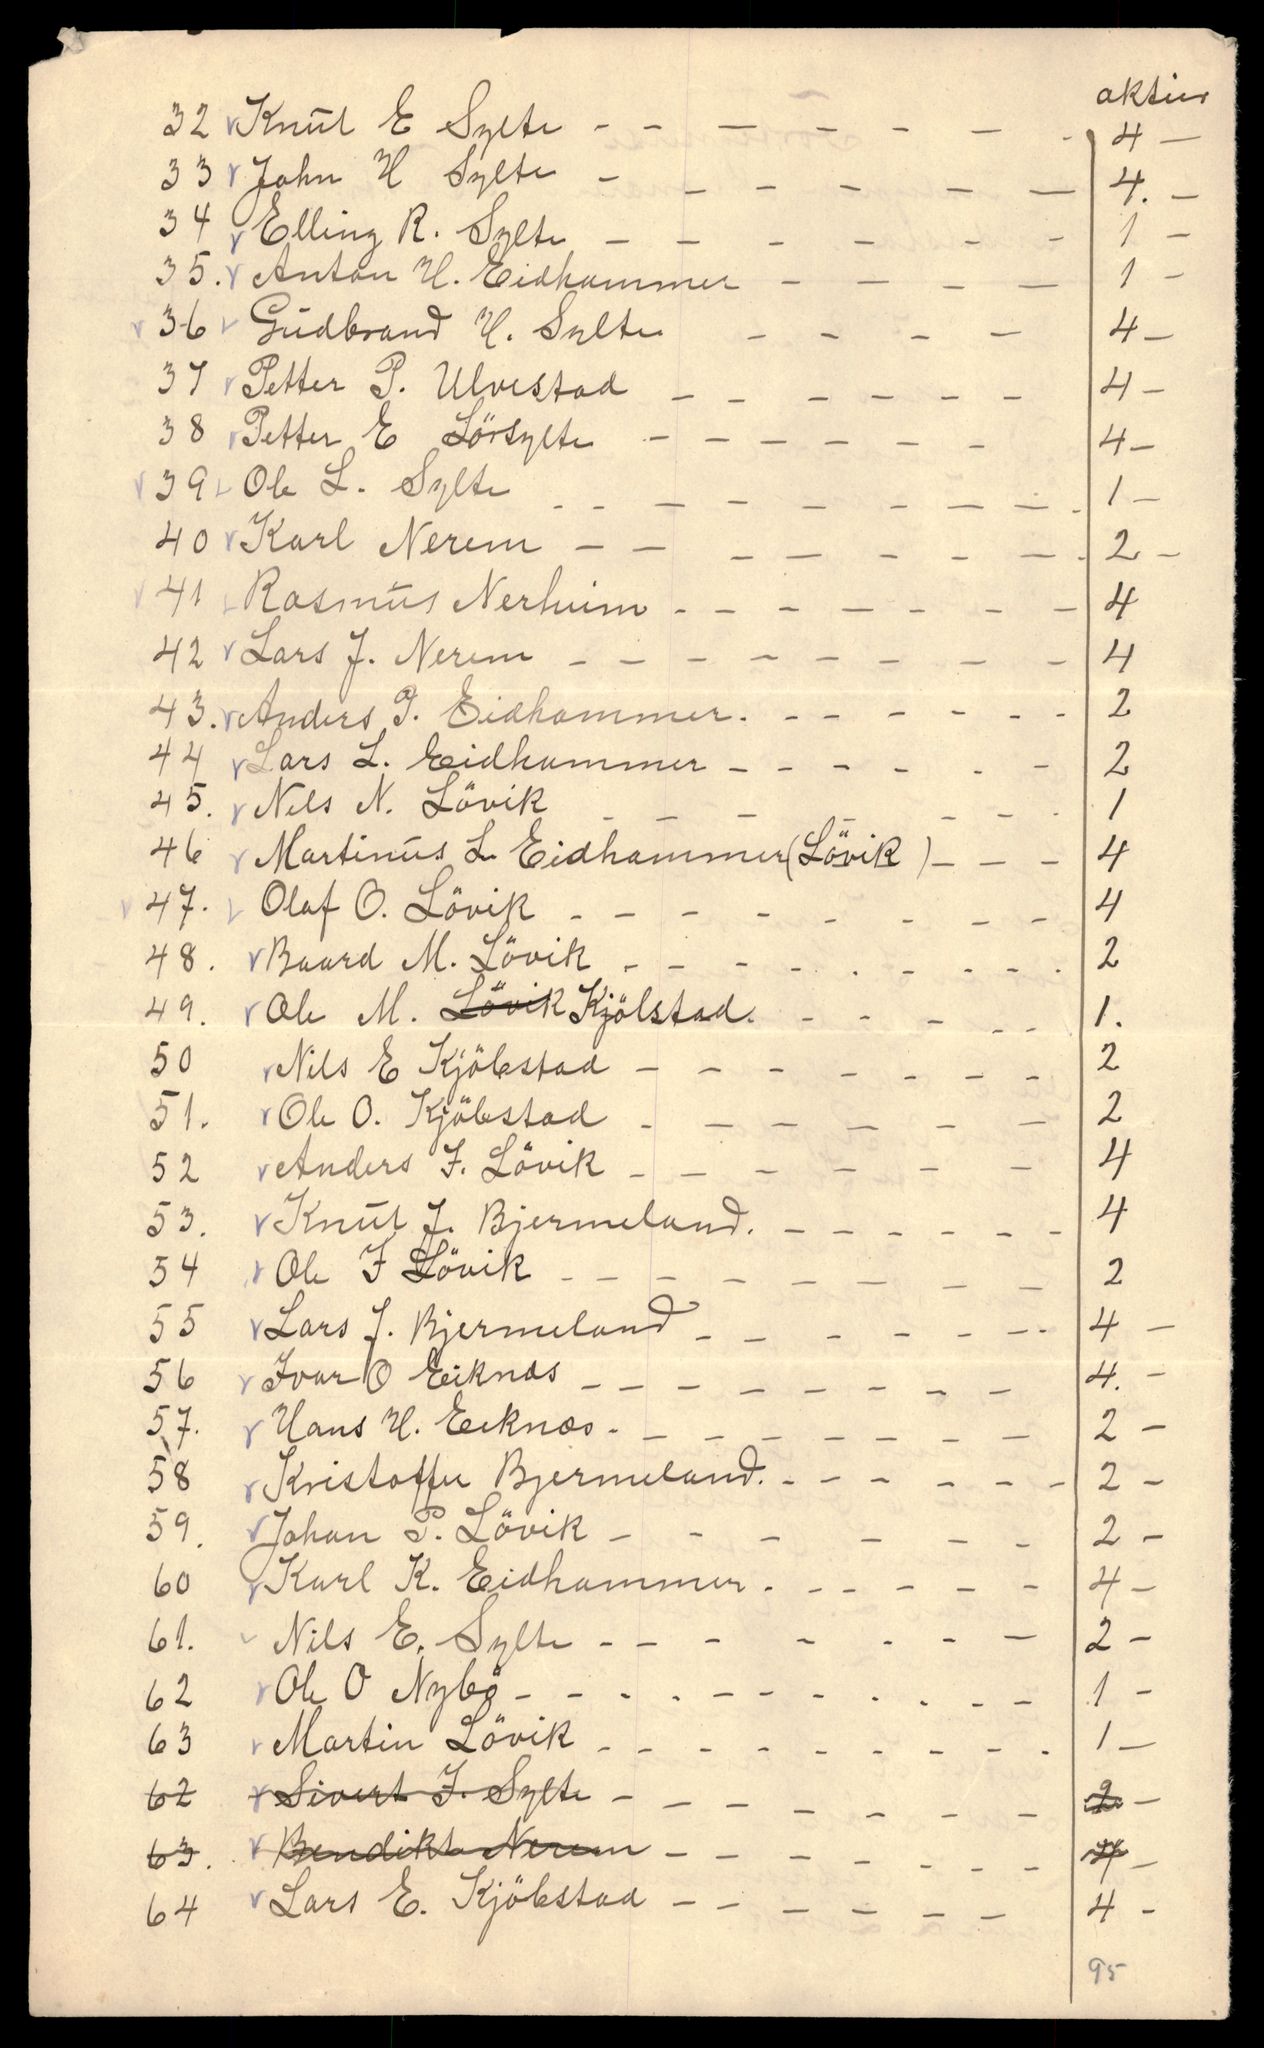 aktier
32 Knut E Sylte - - - - - - - 4 -
33 John H Sylte - - - - - - 4. -
34 Elling R. Sylte - - - - - - - 1 -
35. Anton H. Eidhammer - - - - 1 -
36 Gudbrand H. Sylte - - - - 4 -
37 Petter P. Ulvestad - - - - - - 4 -
38 Petter E Lörsylte - - - - - - 4 -
39 Ole L. Sylte - - - - - - - - 1 -
40 Karl Nerem - - - - - - - 2 -
41 Rasmus Nerheim - - - - - - - 4
42 Lars J. Nerem - - - - - - - - 4
43. Anders P. Eidhammer. - - - - - - 2
44 Lars L. Eidhammer - - - - - - 2
45. Nils N. Lövik - - - - - - - 1
46 Martinus L. Eidhammer (Lövik) - - - 4
47. Olaf O. Lövik - - - - - - - - 4
48. Baard M. Lövik - - - - - - - - - 2
49. Ole M. Lövik Kjölstad. - - - - - 1.
50 Nils E Kjölstad - - - - - - - 2
51. Ole O. Kjölstad - - - - - - 2
52 Anders J. Lövik - - - - - - - 4
53. Knut J. Bjermeland. - - - - - - 4
54 Ole J Lövik - - - - - - - - 2
55 Lars J. Bjermeland - - - - - - - 4 -
56 Ivar O Eiknas - - - - - - - - 4. -
57. Hans H. Eiknæs - - - - - - - - 2 -
58 Kristoffer Bjermeland. - - - - - - 2 -
59. Johan P. Lövik - - - - - - 2 -
60 Karl K. Eidhammer. - - - - - 4 -
61. Nils E. Sylte - - - - - - - 2 -
62 Ole O Nybö - - - - - - - - - - 1 -
63 Martin Lövik - - - - - - - - - 1 -
62 Sivert J. Sylte - - - - - - - 2 -
63. Bendikt Nerem - - - - - - - 4 -
64 Lars E. Kjölstad - - - - - - 4 -
95